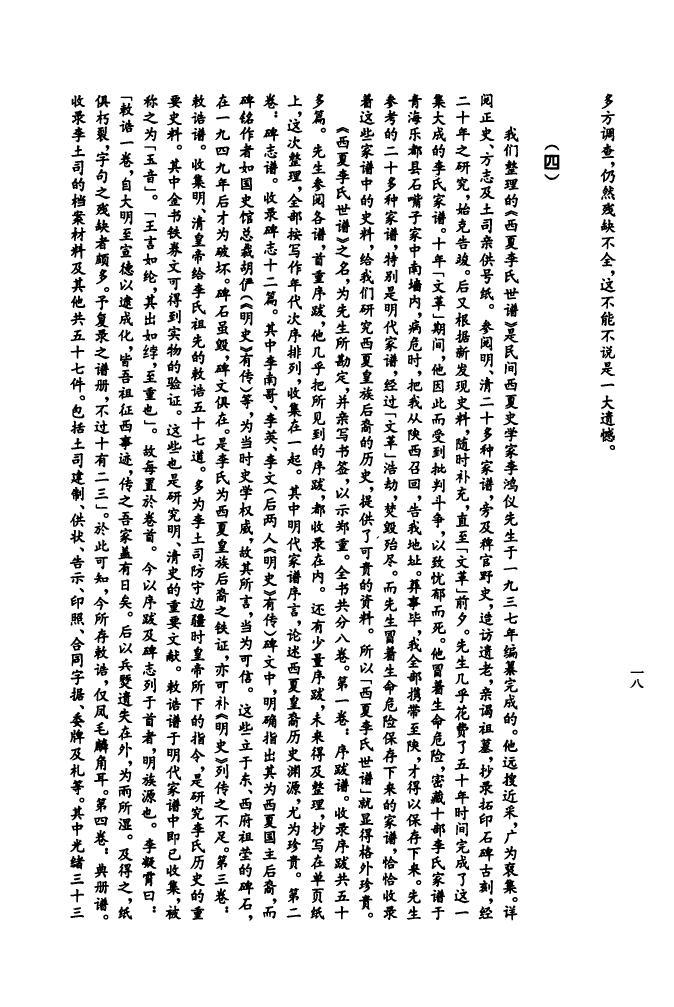 一八
多方调查，仍然残缺不全，这不能不说是一大遗憾。
（四）
我们整理的《西夏李氏世谱》是民间西夏史学家李鸿仪先生于一九三七年编纂完成的。他远搜近采，广为裒集。详
阅正史、方志及土司亲供号纸。参阅明、清二十多种家谱，旁及稗官野史，造访遗老，亲谒祖墓，抄录拓印石碑古刻，经
二十年之研究，始克告竣。后又根据新发现史料，随时补充，直至「文革」前夕。先生几乎花费了五十年时间完成了这一
集大成的李氏家谱。十年「文革」期间，他因此而受到批判斗争，以致忧郁而死。他冒着生命危险，密藏十部李氏家谱于
青海乐都县石嘴子家中南墙内，病危时，把我从陕西召回，告我地址。葬事毕，我全部携带至陕，才得以保存下来。先生
参考的二十多种家谱，特别是明代家谱，经过「文革」浩劫，焚毁殆尽。而先生冒着生命危险保存下来的家谱，恰恰收录
着这些家谱中的史料，给我们研究西夏皇族后裔的历史，提供了可贵的资料。所以「西夏李氏世谱」就显得格外珍贵。
《西夏李氏世谱》之名，为先生所勘定，并亲写书签，以示郑重。全书共分八卷。第一卷：序跋谱。收录序跋共五十
多篇。先生参阅各谱，首重序跋，他几乎把所见到的序跋，都收录在内。还有少量序跋，未来得及整理，抄写在单页纸
上，这次整理，全部按写作年代次序排列，收集在一起。其中明代家谱序言，论述西夏皇裔历史渊源，尤为珍贵。第二
卷：碑志谱。收录碑志十二篇。其中李南哥、李英、李文（后两人《明史》有传）碑文中，明确指出其为西夏国主后裔，而
碑铭作者如国史馆总裁胡俨（《明史》有传）等，为当时史学权威，故其所言，当为可信。这些立于东、西府祖茔的碑石，
在一九四九年后才为破坏。碑石虽毁，碑文俱在。是李氏为西夏皇族后裔之铁证，亦可补《明史》列传之不足。第三卷：
敕诰谱。收集明、清皇帝给李氏祖先的敕诰五十七道。多为李土司防守边疆时皇帝所下的指令，是研究李氏历史的重
要史料。其中金书铁券文可得到实物的验证。这些也是研究明、清史的重要文献。敕诰谱于明代家谱中即已收集，被
称之为「玉音」。「王言如纶，其出如綍，至重也」。故每置於卷首。今以序跋及碑志列于首者，明族源也。李凝霄曰：
「敕诰一卷，自大明至宣德以逮成化，皆吾祖征西事迹，传之吾家盖有日矣。后以兵燹遗失在外，为雨所湿。及得之，纸
俱朽裂，字句之残缺者颇多。予复录之谱册，不过十有二三」。於此可知，今所存敕诰，仅凤毛麟角耳。第四卷：典册谱。
收录李土司的档案材料及其他共五十七件。包括土司建制、供状、告示、印照、合同字据、委牌及札等。其中光绪三十三